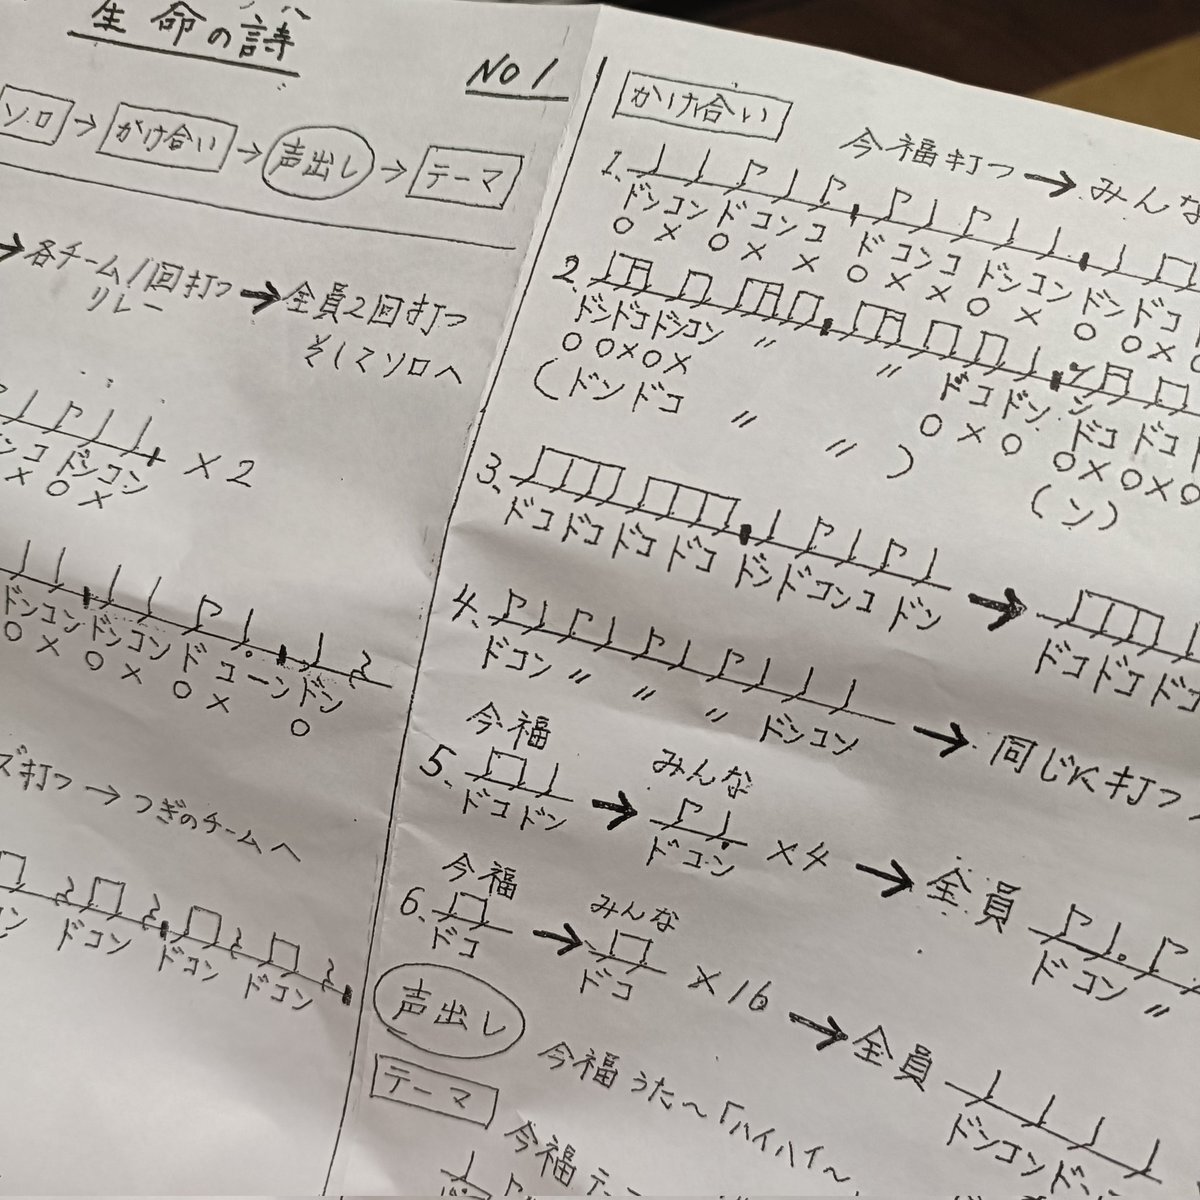 生命の詩
NO1
ソロ→かけ合い→声出し→テーマ
→各チーム1回打つ→全員2回打つ
リレー
そしてソロへ
ドンコン ×2
○ ×
ドンコンドンコンドコーンドン
○ × ○ × ○ × ○
ズ打つ→つぎのチームへ
コン ドコン ドコン ドコン
かけ合い
今福打つ→みんな
1、
ドンコンドコンコ ドコンコドンコンドンドコ
○ × ○ × × ○ × × ○ × ○ ○ ×
2、
ドンドコドンコン 〃 〃 ドコドン ドコ ドコ
○ ○ × ○ × ○ × ○ ○ × ○ × ○
(ドンドコ 〃 〃 )
(ン)
3、
ドコドコドコドコ ドンドコンコ ドン → ドコドコドコ
4、
ドコン 〃 〃 〃 ドンコン → 同じに打つ
今福 みんな
5、
ドコドン → ドコン ×4 → 全員 ドコン 〃
今福 みんな
6、
ドコ → ドコ ×16 → 全員
ドンコンドン
声出し
今福うた〜「ハイハイ〜
テーマ
今福 テー